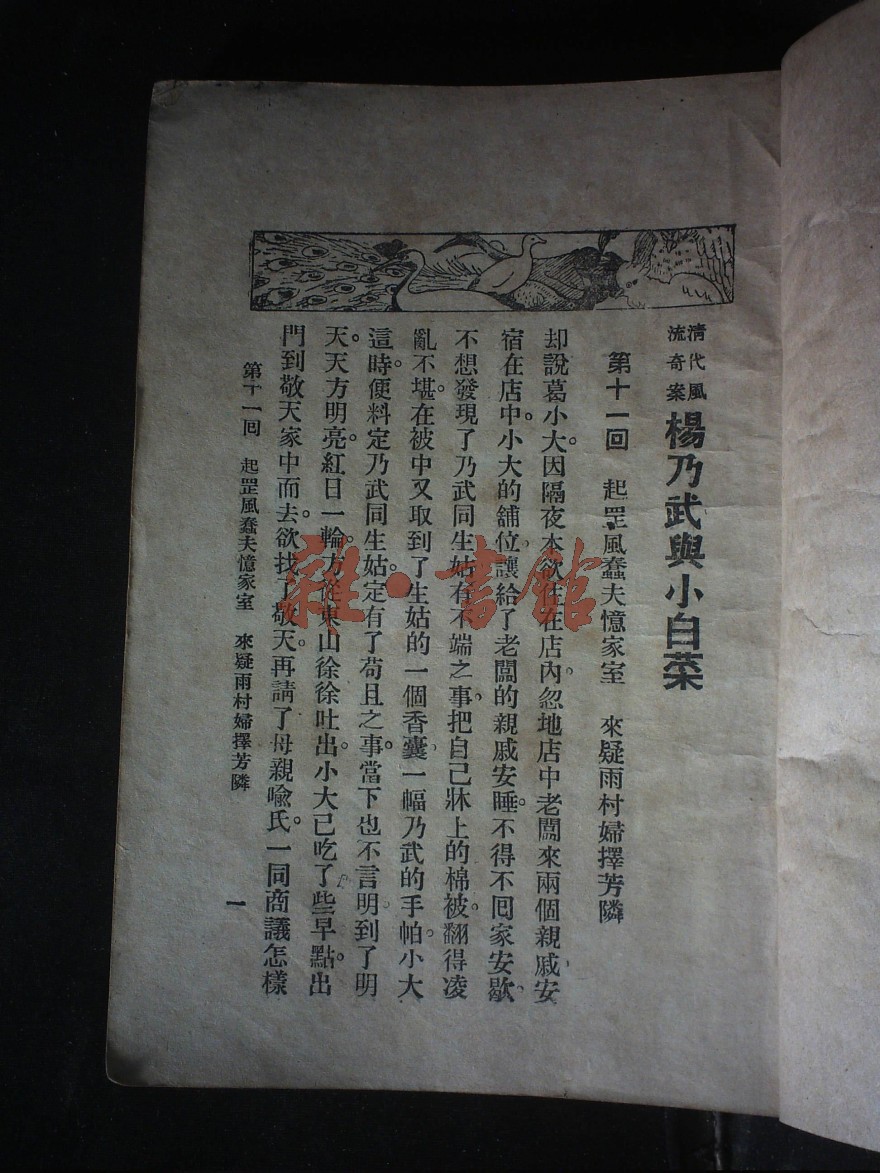 清代風
流奇案
楊乃武與小白菜
第十一回 起罡風蠢夫憶家室 來疑雨村婦擇芳隣
却說葛小大因隔夜本欲住在店內忽地店中老闆來兩個親戚安
宿在店中。小大的舖位讓給了老闆的親戚安睡。不得不囘家安歇。
不想發現了乃武同生姑有不端之事。把自己牀上的棉被。翻得凌
亂不堪。在被中又取到了生姑的一個香囊。一幅乃武的手帕。小大
這時。便料定乃武同生姑。定有了苟且之事。當下也不言明。到了明
天。天方明亮。紅日一輪。方從東山徐徐吐出。小大已吃了些早點。出
門到敬天家中而去。欲找了敬天。再請了母親喩氏。一同商議怎樣
第十一回 起罡風蠢夫憶家室 來疑雨村婦擇芳隣
一
雜·書館